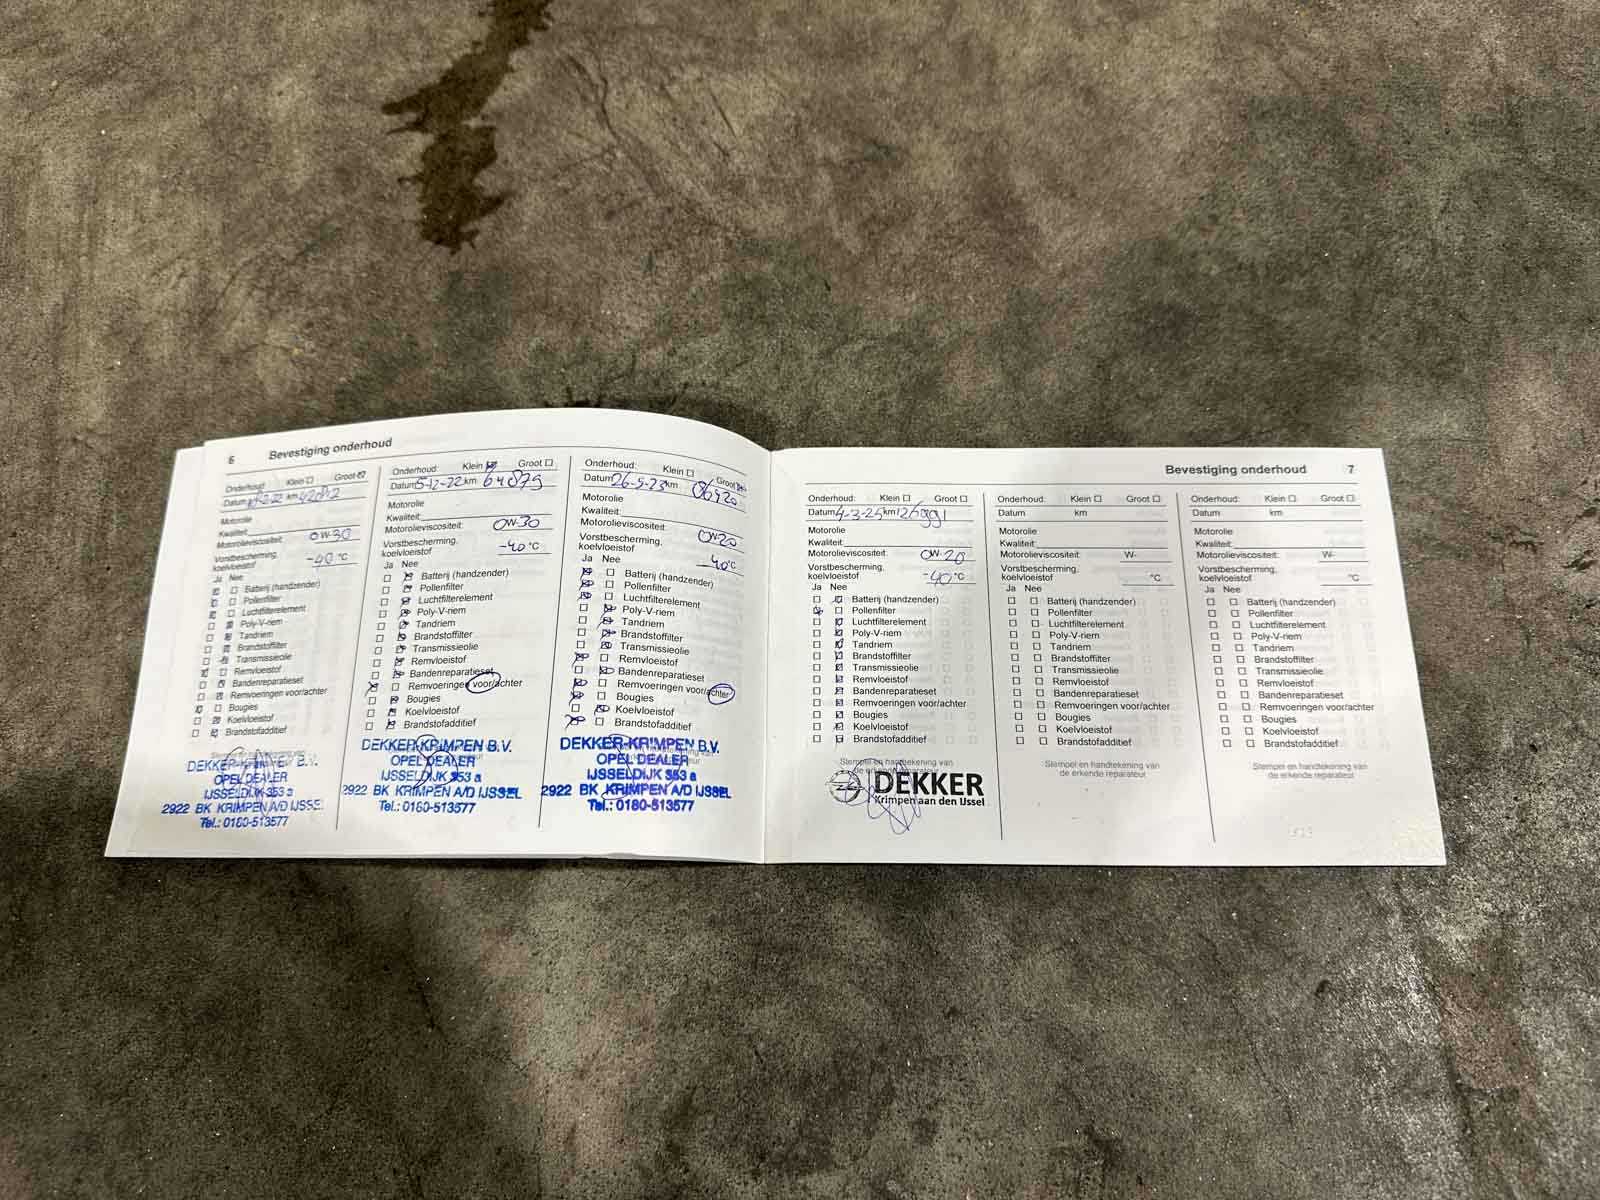 6 Bevestiging onderhoud
Onderhoud: Klein Groot
Datum km 42812
Motorolie
Kwaliteit:
Motorolieviscositeit: 0W-30
Vorstbescherming,
koelvloeistof -40 °C
Ja Nee
Batterij (handzender)
Pollenfilter
Luchtfilterelement
Poly-V-riem
Tandriem
Brandstoffilter
Transmissieolie
Remvloeistof
Bandenreparatieset
Remvoeringen voor/achter
Bougies
Koelvloeistof
Brandstofadditief
Stempel en handtekening van
DEKKER-KRIMPEN B.V.
OPEL DEALER
IJSSELDIJK 353 a
2922 BK KRIMPEN A/D IJSSEL
Tel.: 0180-513577
Onderhoud: Klein Groot
Datum 5-12-22 km 64879
Motorolie
Kwaliteit:
Motorolieviscositeit: 0W-30
Vorstbescherming,
koelvloeistof -40 °C
Ja Nee
Batterij (handzender)
Pollenfilter
Luchtfilterelement
Poly-V-riem
Tandriem
Brandstoffilter
Transmissieolie
Remvloeistof
Bandenreparatieset
Remvoeringen voor/achter
Bougies
Koelvloeistof
Brandstofadditief
DEKKER-KRIMPEN B.V.
OPEL DEALER
IJSSELDIJK 353 a
2922 BK KRIMPEN A/D IJSSEL
Tel.: 0180-513577
Onderhoud: Klein Groot
Datum 26-9-23 km 86920
Motorolie
Kwaliteit:
Motorolieviscositeit: 0W-20
Vorstbescherming,
koelvloeistof -40 °C
Ja Nee
Batterij (handzender)
Pollenfilter
Luchtfilterelement
Poly-V-riem
Tandriem
Brandstoffilter
Transmissieolie
Remvloeistof
Bandenreparatieset
Remvoeringen voor/achter
Bougies
Koelvloeistof
Brandstofadditief
DEKKER-KRIMPEN B.V.
OPEL DEALER
IJSSELDIJK 353 a
2922 BK KRIMPEN A/D IJSSEL
Tel.: 0180-513577
Bevestiging onderhoud 7
Onderhoud: Klein Groot
Datum 4-3-25 km 126991
Motorolie
Kwaliteit:
Motorolieviscositeit: 0W-20
Vorstbescherming,
koelvloeistof -40 °C
Ja Nee
Batterij (handzender)
Pollenfilter
Luchtfilterelement
Poly-V-riem
Tandriem
Brandstoffilter
Transmissieolie
Remvloeistof
Bandenreparatieset
Remvoeringen voor/achter
Bougies
Koelvloeistof
Brandstofadditief
Stempel en handtekening van
de erkende reparateur
DEKKER
Krimpen aan den IJssel
Onderhoud: Klein Groot
Datum km
Motorolie
Kwaliteit:
Motorolieviscositeit: W-
Vorstbescherming,
koelvloeistof °C
Ja Nee
Batterij (handzender)
Pollenfilter
Luchtfilterelement
Poly-V-riem
Tandriem
Brandstoffilter
Transmissieolie
Remvloeistof
Bandenreparatieset
Remvoeringen voor/achter
Bougies
Koelvloeistof
Brandstofadditief
Stempel en handtekening van
de erkende reparateur
Onderhoud: Klein Groot
Datum km
Motorolie
Kwaliteit:
Motorolieviscositeit: W-
Vorstbescherming,
koelvloeistof °C
Ja Nee
Batterij (handzender)
Pollenfilter
Luchtfilterelement
Poly-V-riem
Tandriem
Brandstoffilter
Transmissieolie
Remvloeistof
Bandenreparatieset
Remvoeringen voor/achter
Bougies
Koelvloeistof
Brandstofadditief
Stempel en handtekening van
de erkende reparateur